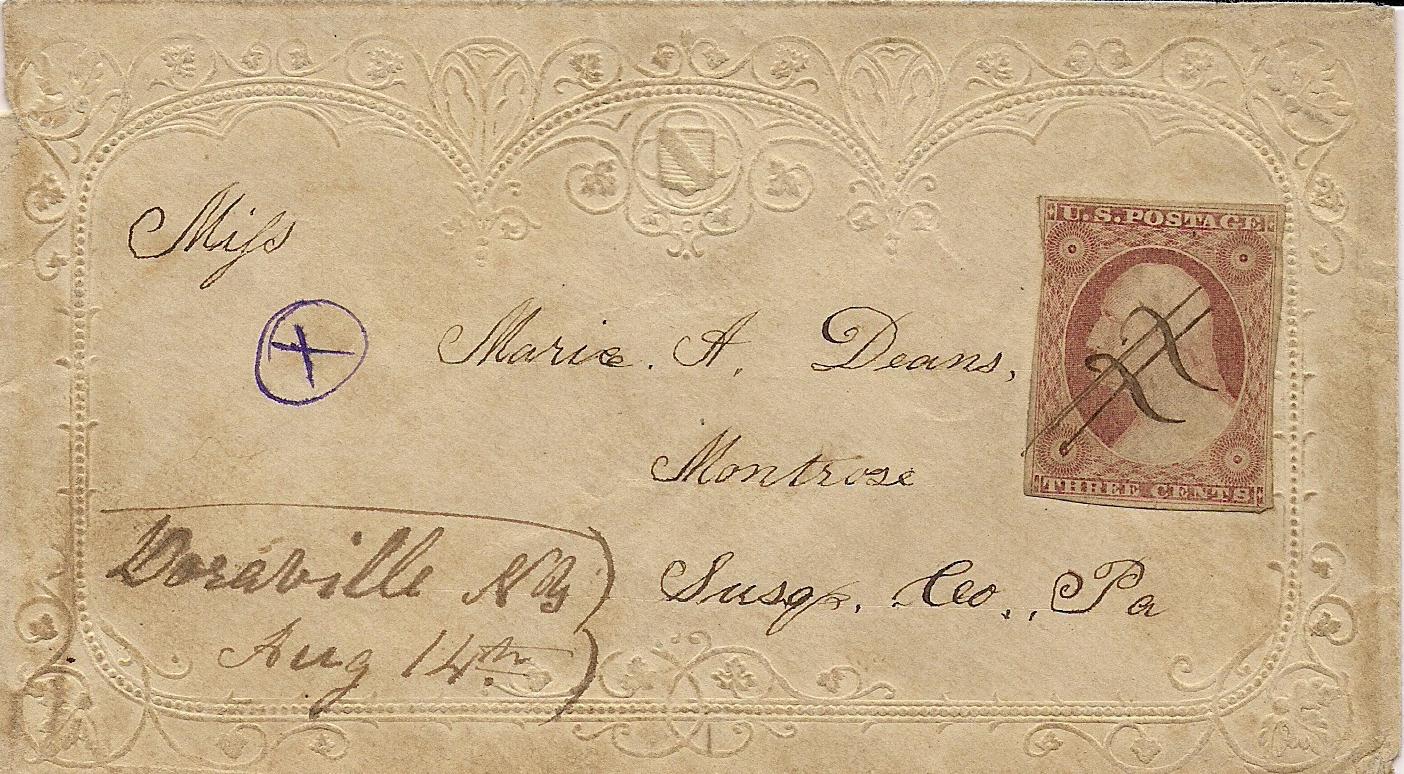 U.S. POSTAGE
Miſs
Marie. A. Deans,
Montrose
Susq. Co., Pa
THREE CENTS
Doraville NY
Aug 14th